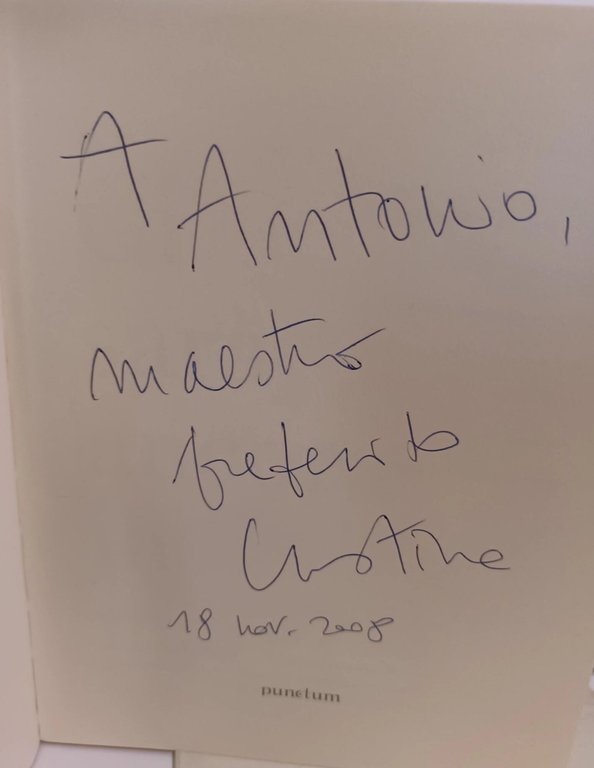 A Antonio,
maestro
preferito
Christine
18 nov. 2008
punctum